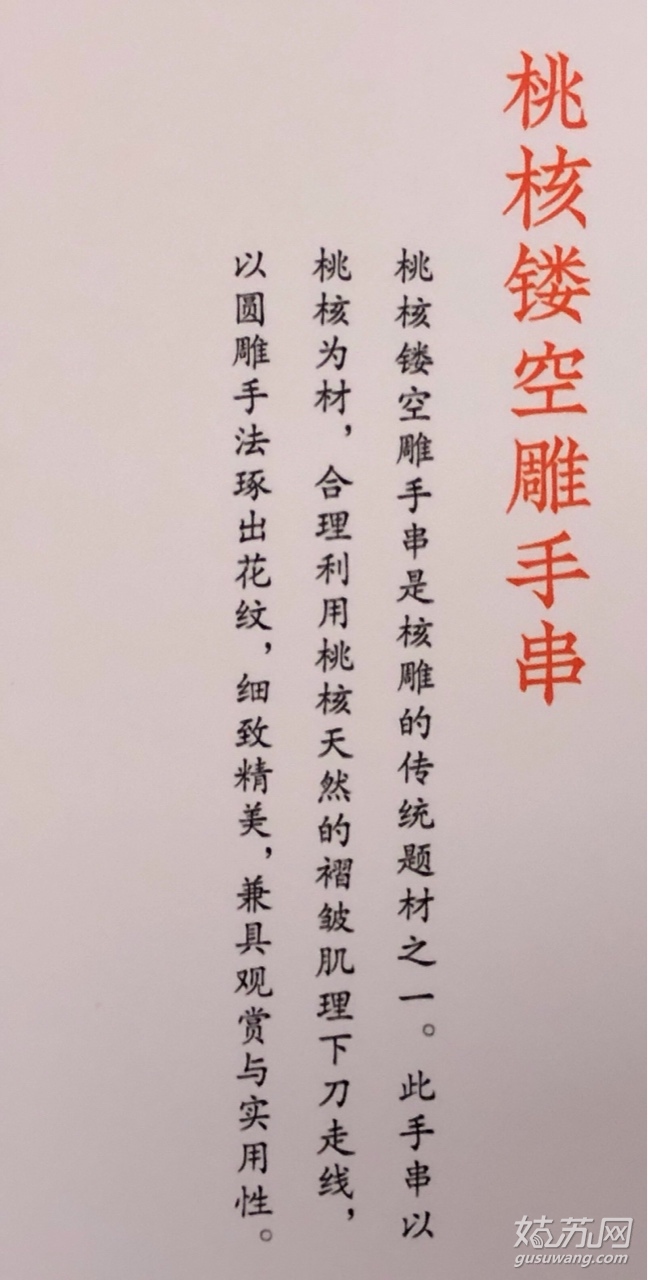 桃核镂空雕手串
桃核镂空雕手串是核雕的传统题材之一。此手串以
桃核为材，合理利用桃核天然的褶皱肌理下刀走线，
以圆雕手法琢出花纹，细致精美，兼具观赏与实用性。
姑苏网
gusuwang.com